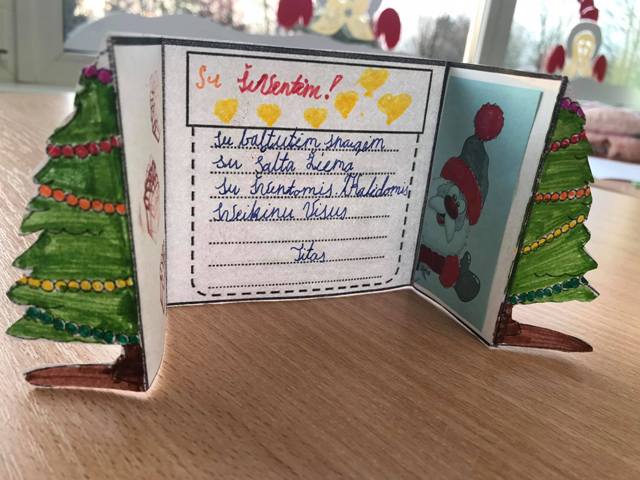 Su Šventėm!
Su baltutėm snaigėm
Su Šalta Žiema
Su Šventomis Kalėdomis
Sveikinu Visus
Titas